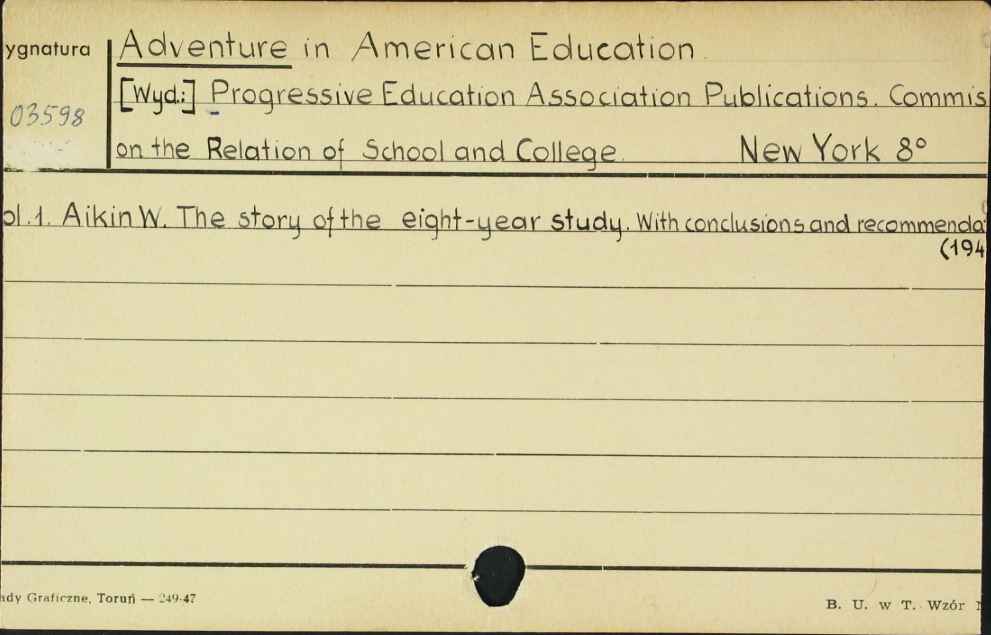 ygnatura
Adventure in American Education
[Wyd.:] Progressive Education Association Publications. Commis
03598
on the Relation of School and College. New York 8°
ol.1. Aikin W. The story of the eight-year study. With conclusions and recommenda
(194
ady Graficzne, Toruń — 249-47
B. U. w T. Wzór